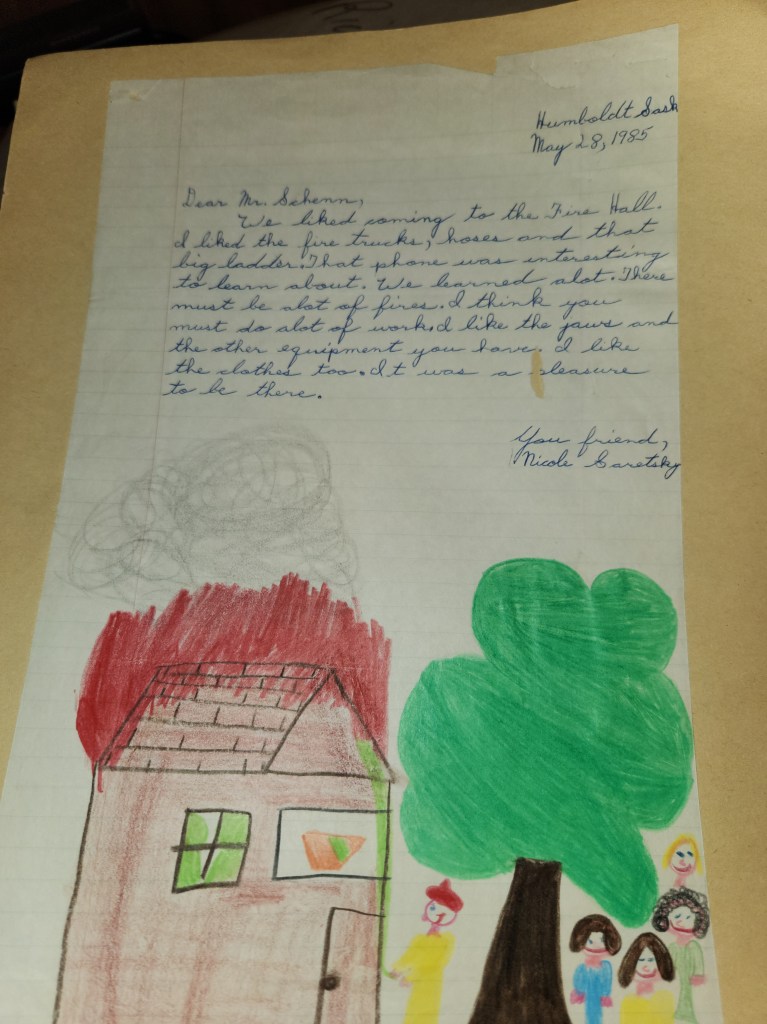 Humboldt Sask
May 28, 1985
Dear Mr. Schenn,
We liked coming to the Fire Hall.
I liked the fire trucks, hoses and that
big ladder. That phone was interesting
to learn about. We learned alot. There
must be alot of fires. I think you
must do alot of work. I like the jaws and
the other equipment you have. I like
the clothes too. It was a pleasure
to be there.
You friend,
Nicole Saretsky